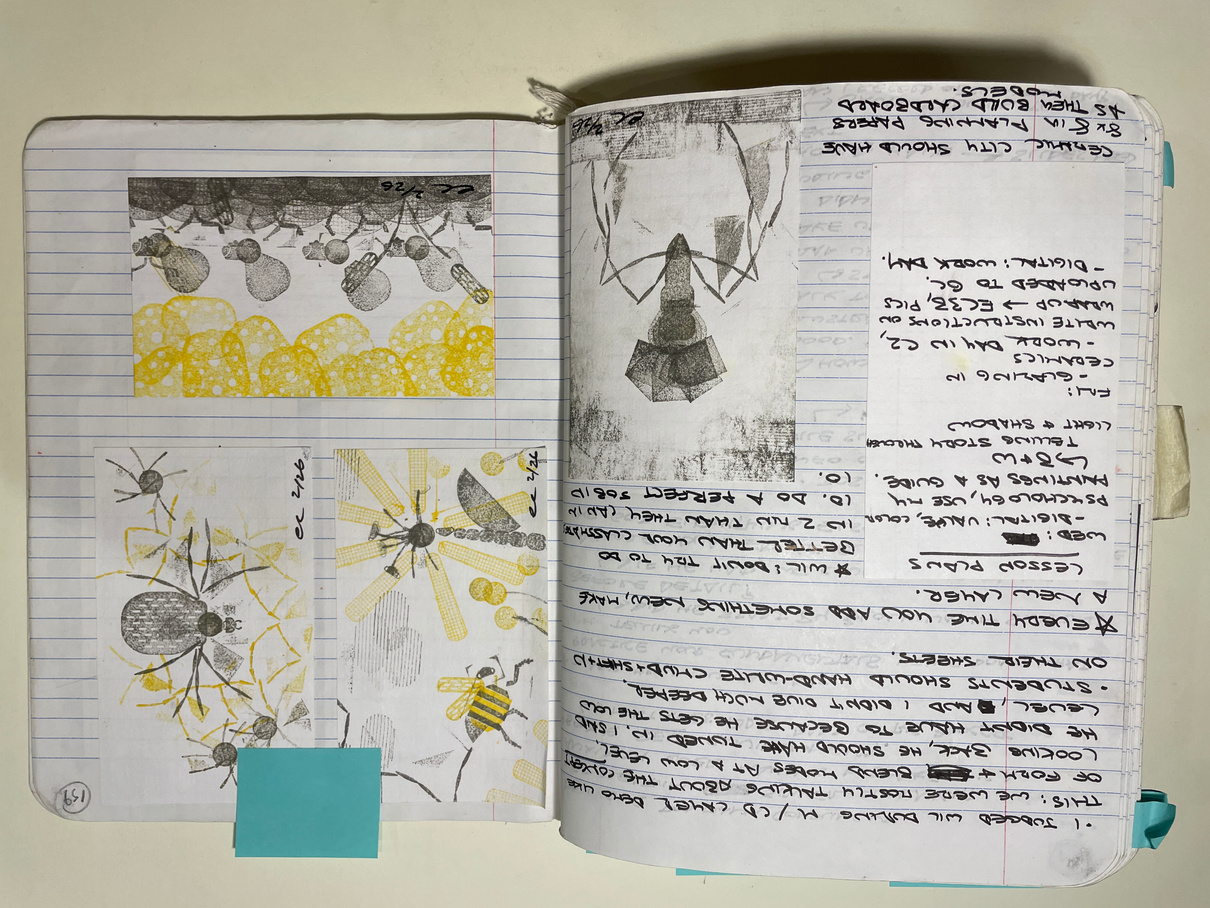 · I JUDGED WIL DURING M/CD LAYER DEMO LIKE
THIS: WE WERE MOSTLY TALKING ABOUT THE CONCEPT
OF FORM + BLEND MODES AT A LOW LEVEL.
LOOKING BACK, HE SHOULD HAVE TUNED IN. I
HE DIDN'T HAVE TO BECAUSE HE GETS THE LOW
LEVEL, AND I DIDN'T DIVE MUCH DEEPER.
· STUDENTS SHOULD HAND-WRITE
ON THEIR SHEETS.
☆ EVERY TIME YOU ADD SOMETHING NEW, MAKE
A NEW LAYER.
LESSON PLANS
WED:
- DIGITAL: VALUE, COLOR
PSYCHOLOGY, USE MY
PAINTINGS AS A GUIDE.
↳ B+W
TELLING STORY THROUGH
LIGHT & SHADOW
FRI:
- GLAZING IN
CERAMICS
- WORK DAY IN C2,
WRITE INSTRUCTIONS ON
WRAP UP → EC33, PICS
UPLOADED TO GC.
- DIGITAL: WORK DAY.
★ WIL: DON'T TRY TO DO
BETTER THAN YOUR CLASSMATE
IN 2 MIN THAN THEY CAN IN
10. DO A PERFECT JOB IN
10.
CERAMIC CITY SHOULD HAVE
8x8 IN PLANNING PAPERS
AS THEY BUILD CARDBOARD
MODELS.
ec 2/26
159
ec 2/26
ec 2/26
ec 2/26